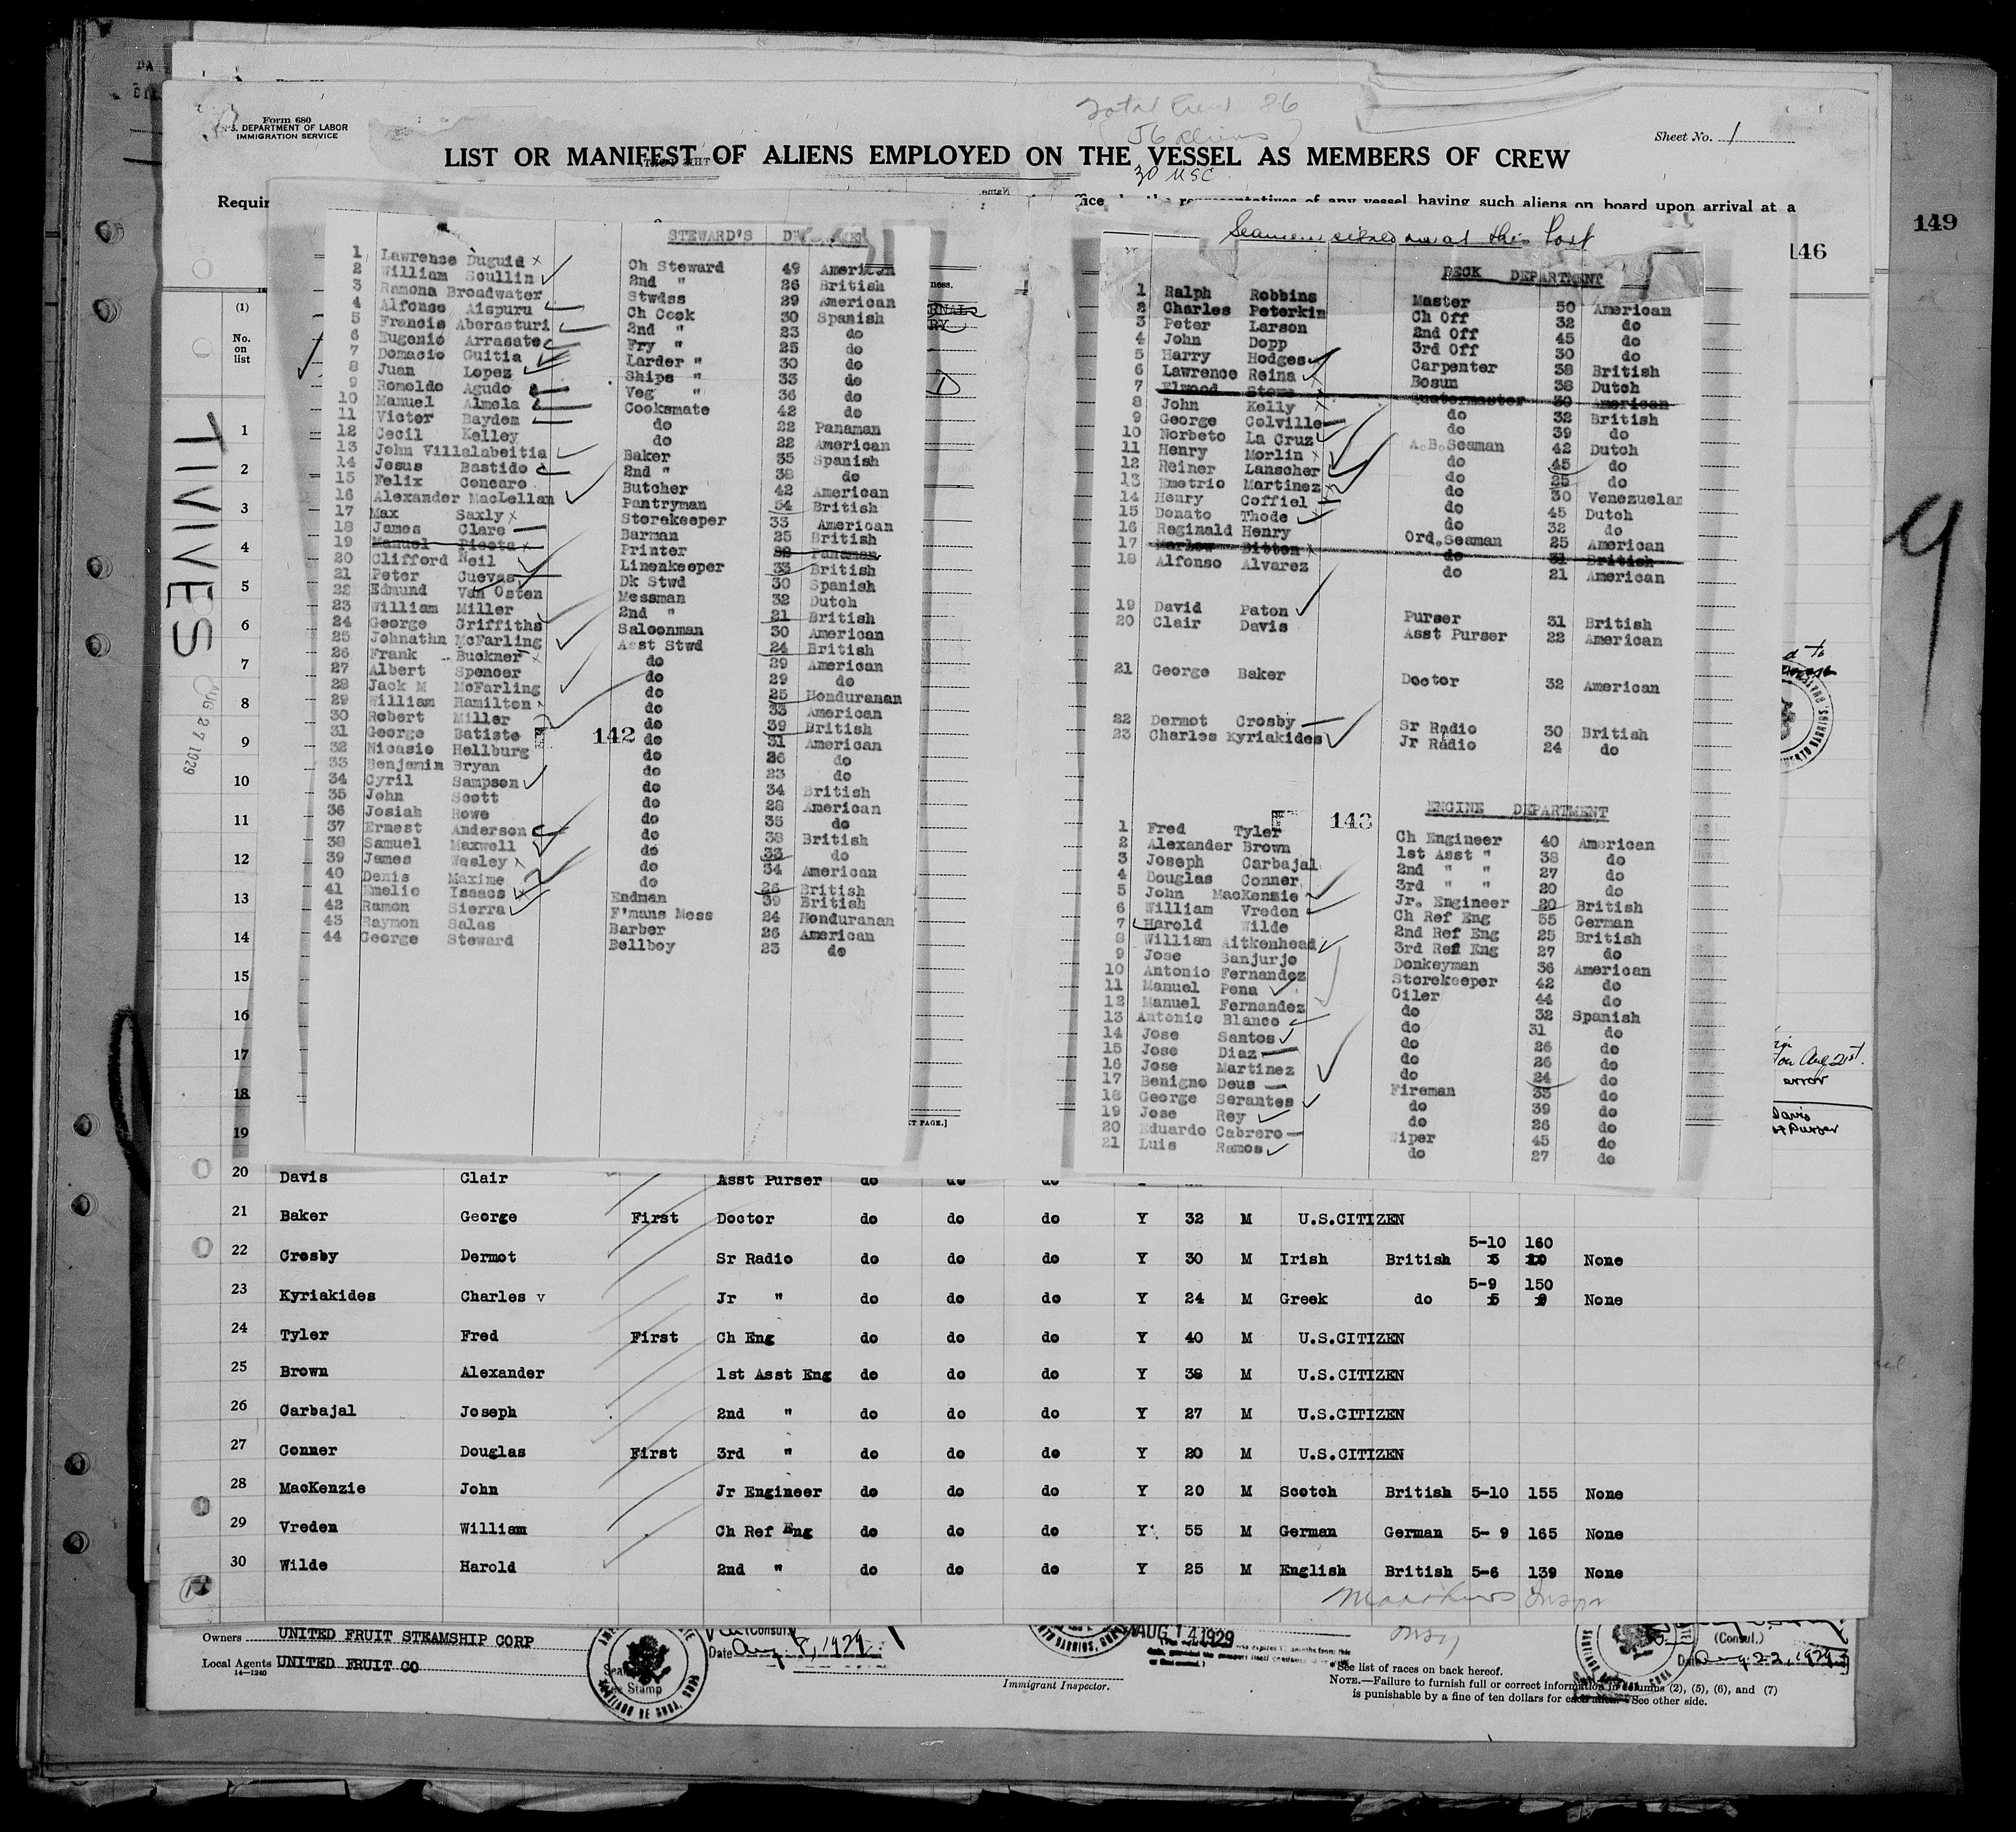 Form 680
U.S. DEPARTMENT OF LABOR
IMMIGRATION SERVICE
Total Crew 86
(56 aliens)
30 USC
Sheet No. 1
LIST OR MANIFEST OF ALIENS EMPLOYED ON THE VESSEL AS MEMBERS OF CREW
149
146
TIVIVES
AUG 27 1929
(1)
No. on list
STEWARD'S
1 Lawrence Duguid Ch Steward 49 American
2 William Scullin 2nd " 26 British
3 Ramona Broadwater Stwdss 29 American
4 Alfonso Aispuru Ch Cook 30 Spanish
5 Francis Aborasturi 2nd " 23 do
6 Eugenio Arrasate Fry " 25 do
7 Domacio Guitia Larder " 30 do
8 Juan Lopez Ships " 33 do
9 Romoldo Agudo Veg " 36 do
10 Manuel Almela Cooksmate 42 do
11 Victor Bayden do 22 Panaman
12 Cecil Kelley do 22 American
13 John Villalabeitia Baker 35 Spanish
14 Jesus Bastido 2nd " 38 do
15 Felix Concaro Butcher 42 American
16 Alexander MacLellan Pantryman 54 British
17 Max Saxly Storekeeper 33 American
18 James Clare Barman 25 British
19 Manuel Picota Printer Panaman
20 Clifford Neil Linenkeeper 33 British
21 Peter Cuevas Dk Stwd 30 Spanish
22 Edmund Van Osten Messman 32 Dutch
23 William Miller 2nd " 21 British
24 George Griffiths Saloonman 30 American
25 Johnathn McFarling Asst Stwd 24 British
26 Frank Buckner do 29 American
27 Albert Spencer do 29 do
28 Jack M McFarling do 25 Honduranan
29 William Hamilton do 33 American
30 Robert Miller do 39 British
31 George Batiste do 31 American
32 Nicasio Hellburg do 26 do
33 Benjamin Bryan do 23 do
34 Cyril Sampson do 34 British
35 John Scott do 28 American
36 Josiah Rowe do 35 do
37 Ernest Anderson do 38 British
38 Samuel Maxwell do 33 do
39 James Wesley do 34 American
40 Denis Maxime do 26 British
41 Emelio Isaacs Endman 39 British
42 Ramon Sierra F'mans Mess 24 Honduranan
43 Raymon Salas Barber 26 American
44 George Steward Bellboy 23 do
142
Seamen signed on at this Port
DECK DEPARTMENT
1 Ralph Robbins Master 50 American
2 Charles Peterkin Ch Off 32 do
3 Peter Larson 2nd Off 45 do
4 John Dopp 3rd Off 30 do
5 Harry Hodges Carpenter 38 British
6 Lawrence Reina Bosun 38 Dutch
7 Elwood Stowe Quatermaster 30 American
8 John Kelly do 32 British
9 George Colville do 39 do
10 Norbeto La Cruz A.B.Seaman 42 Dutch
11 Henry Morlin do 45 do
12 Reiner Lanscher do 25 do
13 Emetrio Martinez do 30 Venezuelan
14 Henry Coffiel do 45 Dutch
15 Donato Thode do 32 do
16 Reginald Henry Ord.Seaman 25 American
17 Marlow Bitton do 31 British
18 Alfonso Alvarez do 21 American
19 David Paton Purser 31 British
20 Clair Davis Asst Purser 22 American
21 George Baker Doctor 32 American
22 Dermot Crosby Sr Radio 30 British
23 Charles Kyriakides Jr Radio 24 do
143
ENGINE DEPARTMENT
1 Fred Tyler Ch Engineer 40 American
2 Alexander Brown 1st Asst " 38 do
3 Joseph Carbajal 2nd " " 27 do
4 Douglas Conner 3rd " " 20 do
5 John MacKenzie Jr. Engineer 20 British
6 William Vreden Ch Ref Eng 55 German
7 Harold Wilde 2nd Ref Eng 25 British
8 William Aitkenhead 3rd Ref Eng 27 do
9 Jose Sanjurjo Donkeyman 36 American
10 Antonio Fernandez Storekeeper 42 do
11 Manuel Pena Oiler 44 do
12 Manuel Fernandez do 32 Spanish
13 Antonio Blanco do 31 do
14 Jose Santos do 26 do
15 Jose Diaz do 26 do
16 Jose Martinez do 24 do
17 Benigno Deus Fireman 33 do
18 George Serantes do 39 do
19 Jose Rey do 26 do
20 Eduardo Cabrero Wiper 45 do
21 Luis Ramos do 27 do
on Aug 21st.
error
Davis
1
2
3
4
5
6
7
8
9
10
11
12
13
14
15
16
17
18
19
20 Davis Clair Asst Purser do do do
21 Baker George First Doctor do do do Y 32 M U.S.CITIZEN
22 Crosby Dermot Sr Radio do do do Y 30 M Irish British 5-10 160 None
23 Kyriakides Charles v Jr " do do do Y 24 M Greek do 5-9 150 None
24 Tyler Fred First Ch Eng do do do Y 40 M U.S.CITIZEN
25 Brown Alexander 1st Asst Eng do do do Y 38 M U.S.CITIZEN
26 Carbajal Joseph 2nd " do do do Y 27 M U.S.CITIZEN
27 Conner Douglas First 3rd " do do do Y 20 M U.S.CITIZEN
28 MacKenzie John Jr Engineer do do do Y 20 M Scotch British 5-10 155 None
29 Vreden William Ch Ref Eng do do do Y 55 M German German 5- 9 165 None
30 Wilde Harold 2nd " do do do Y 25 M English British 5-6 139 None
Owners UNITED FRUIT STEAMSHIP CORP
Local Agents UNITED FRUIT CO
14—1240
(Consul.)
Date Aug. 8, 1929
SANTIAGO DE CUBA, CUBA
AUG 14 1929
Immigrant Inspector.
(Consul.)
Date Aug. 22, 1929
* See list of races on back hereof.
NOTE.—Failure to furnish full or correct information in columns (2), (5), (6), and (7)
is punishable by a fine of ten dollars for each alien. See other side.